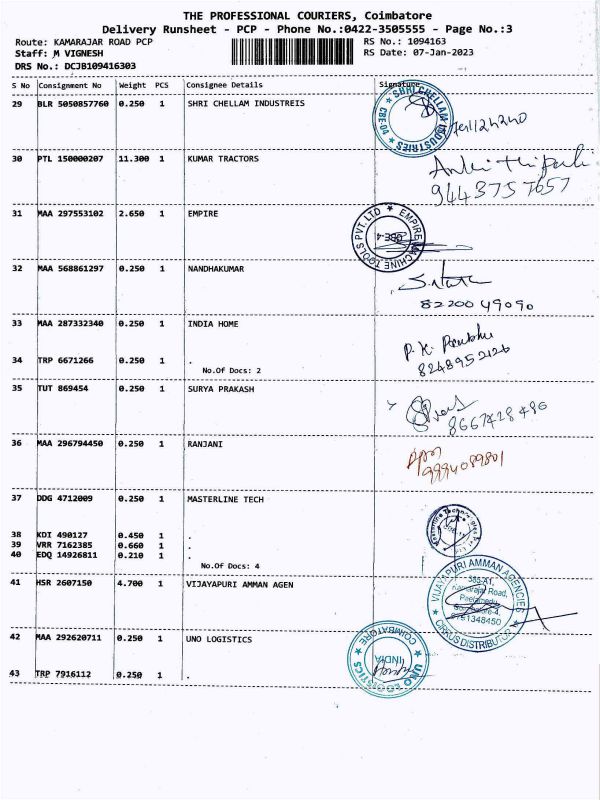 THE PROFESSIONAL COURIERS, Coimbatore
Delivery Runsheet - PCP - Phone No.:0422-3505555 - Page No.:3
Route: KAMARAJAR ROAD PCP RS No.: 1094163
Staff: M VIGNESH RS Date: 07-Jan-2023
DRS No.: DCJB109416303
S No Consignment No Weight PCS Consignee Details Signature
29 BLR 5050857760 0.250 1 SHRI CHELLAM INDUSTREIS
SHRI CHELLAM INDUSTRIES
30 PTL 150000207 11.300 1 KUMAR TRACTORS
9443757657
31 MAA 297553102 2.650 1 EMPIRE
EMPIRE MACHINE TOOLS PVT. LTD
CBE-4
32 MAA 568861297 0.250 1 NANDHAKUMAR
8220049090
33 MAA 287332340 0.250 1 INDIA HOME
P. K. Prabhu
8248952126
34 TRP 6671266 0.250 1 .
No.Of Docs: 2
35 TUT 869454 0.250 1 SURYA PRAKASH
8667428486
36 MAA 296794450 0.250 1 RANJANI
9994089801
37 DDG 4712009 0.250 1 MASTERLINE TECH
38 KDI 490127 0.450 1 .
39 VRR 7162385 0.660 1 .
40 EDQ 14926811 0.210 1 .
No.Of Docs: 4
41 HSR 2607150 4.700 1 VIJAYAPURI AMMAN AGEN
VIJAYAPURI AMMAN AGENCIES
585-A1,
Kamarajar Road,
Peelamedu,
Coimbatore-4.
9751348450
CIRKUS DISTRIBUTOR
42 MAA 292620711 0.250 1 UNO LOGISTICS
UNO LOGISTICS
COIMBATORE
INDIA
43 TRP 7916112 0.250 1 .